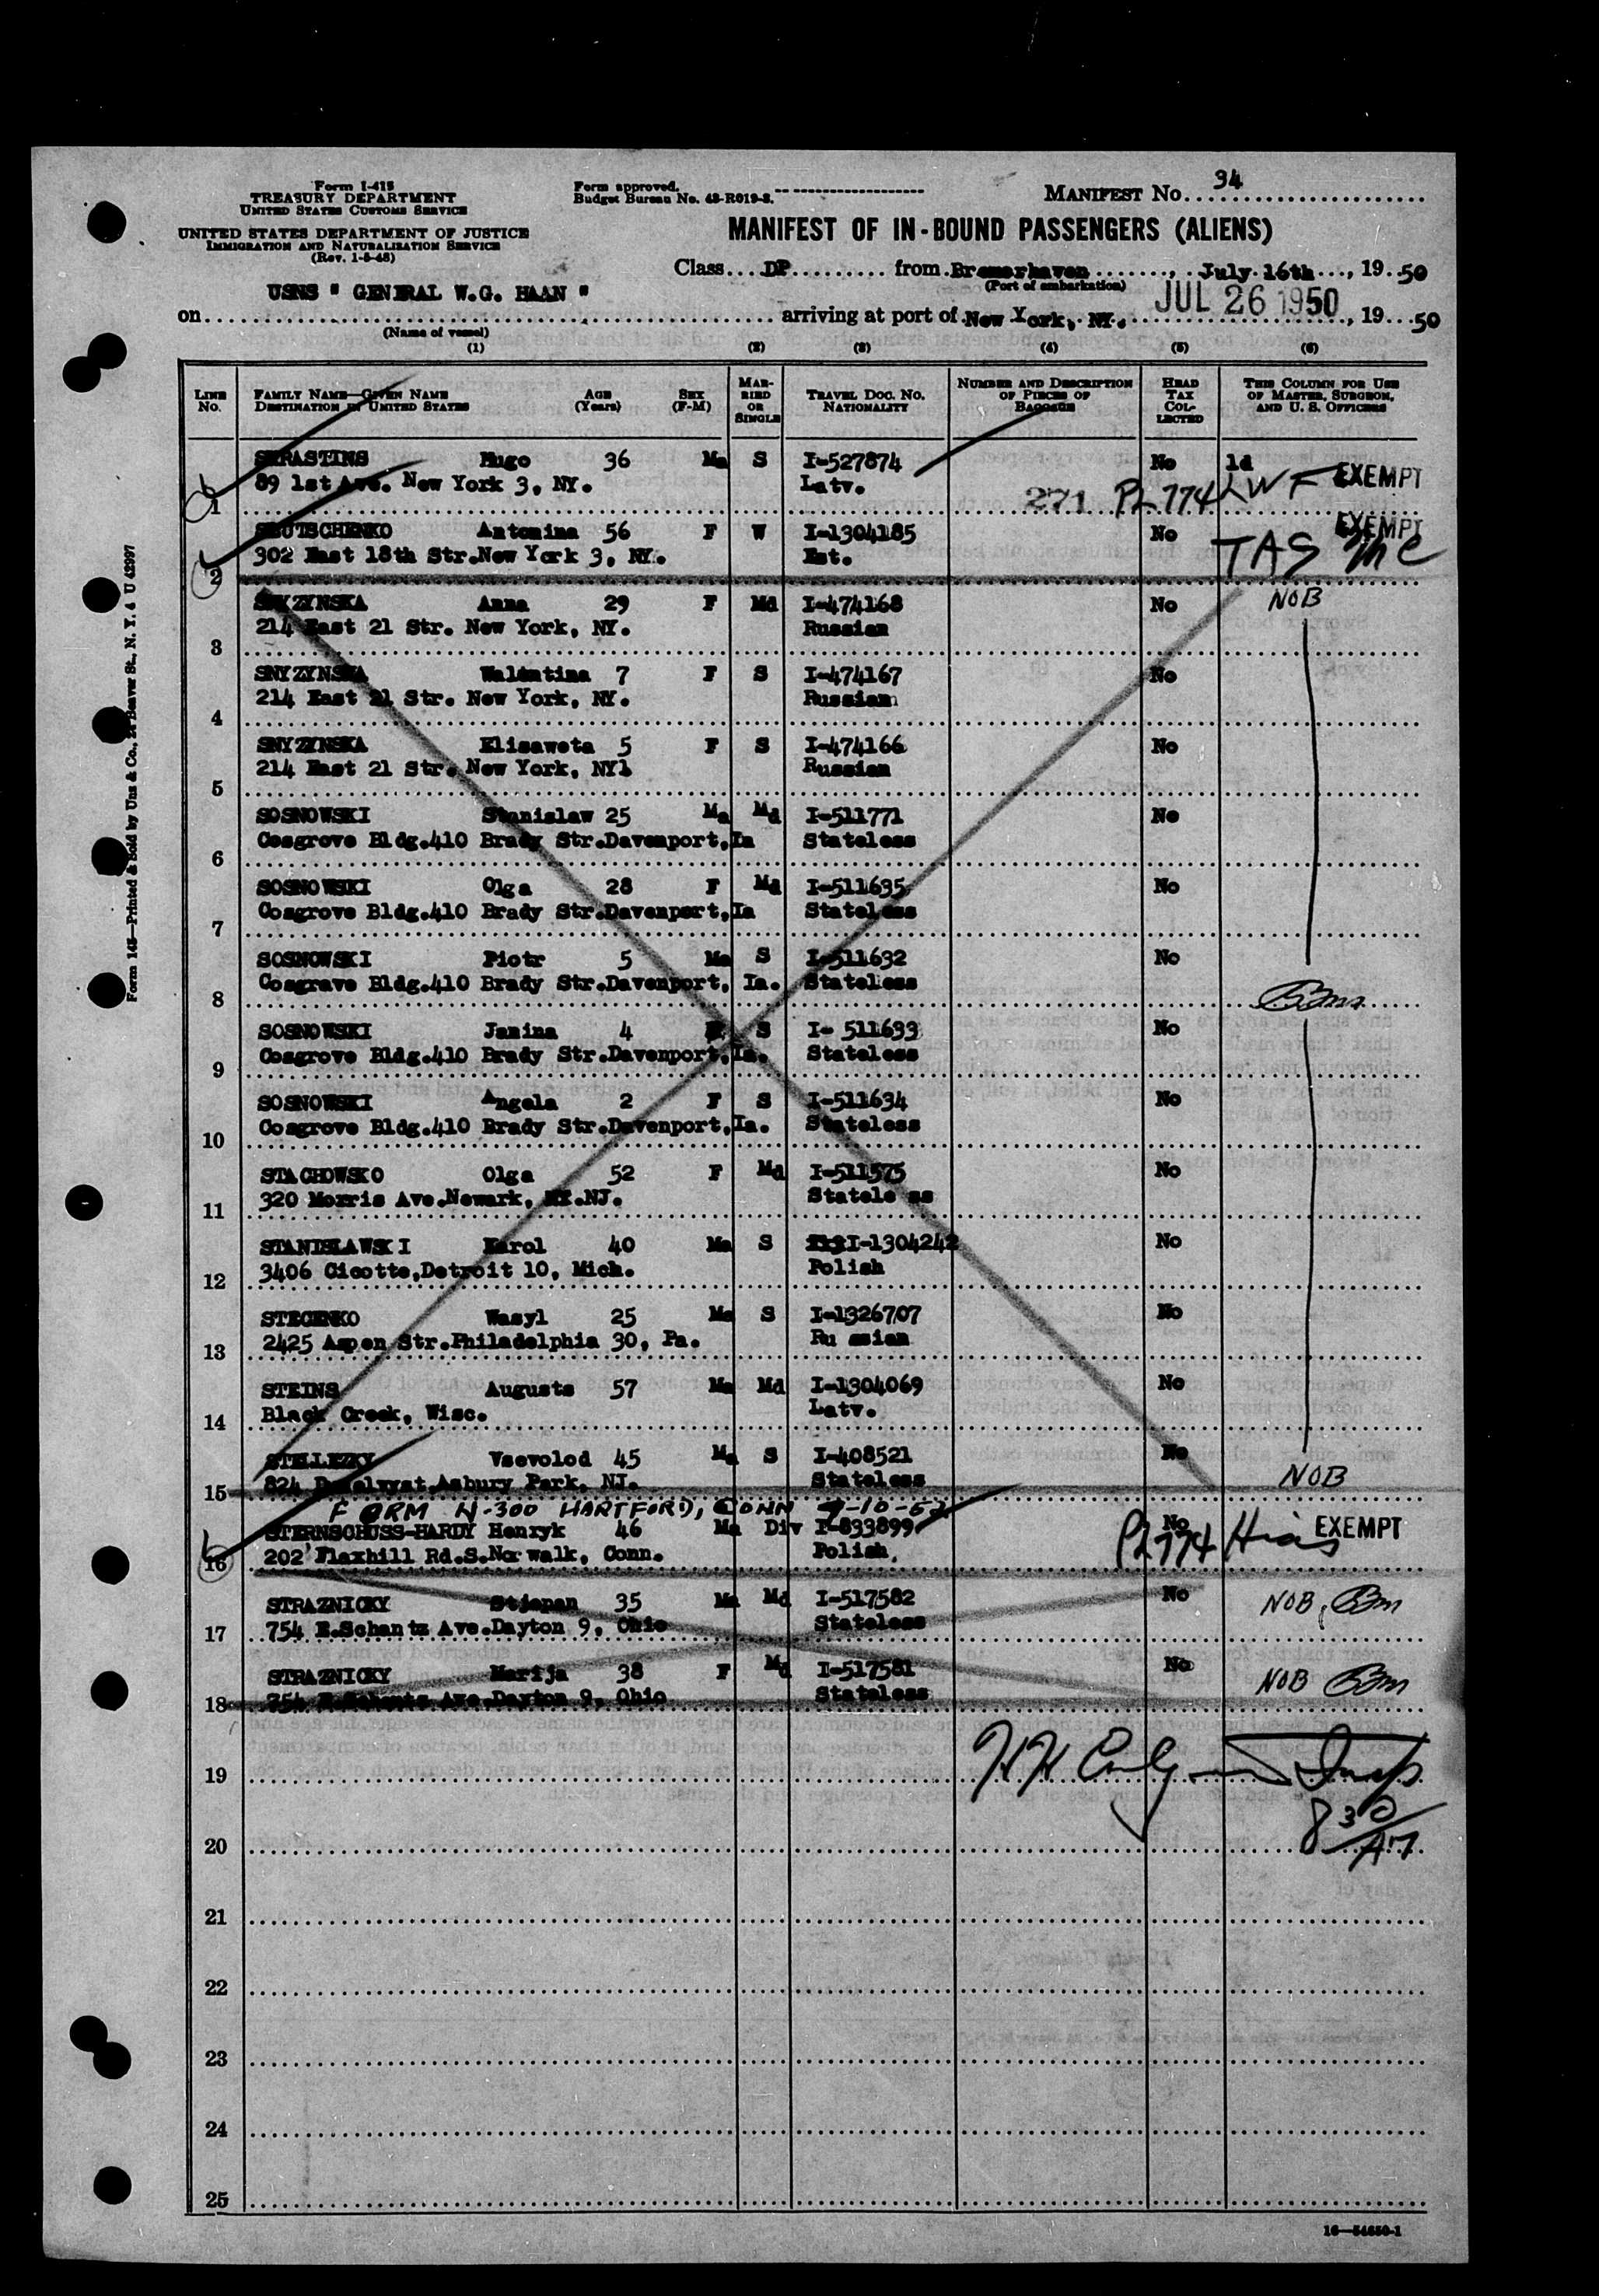 Form I-415
TREASURY DEPARTMENT
UNITED STATES CUSTOMS SERVICE
UNITED STATES DEPARTMENT OF JUSTICE
IMMIGRATION AND NATURALIZATION SERVICE
(Rev. 1-5-48)
Form approved.
Budget Bureau No. 43-R019-3.
MANIFEST No. 34
MANIFEST OF IN-BOUND PASSENGERS (ALIENS)
Class DP from Bremerhaven, July 16th, 19 50
(Port of embarkation)
USNS " GENERAL W.G. HAAN "
on arriving at port of New York, NY. JUL 26 1950, 19 50
(Name of vessel)
(1) (2) (3) (4) (5) (6)
LINE No. FAMILY NAME—GIVEN NAME DESTINATION IN UNITED STATES AGE (Years) SEX (F-M) MARRIED OR SINGLE TRAVEL DOC. No. NATIONALITY NUMBER AND DESCRIPTION OF PIECES OF BAGGAGE HEAD TAX COLLECTED THIS COLUMN FOR USE OF MASTER, SURGEON, AND U. S. OFFICERS
Hugo 36 Ma S I-527874 No ld
89 1st Ave. New York 3, NY. Latv. 271 PL 774 LWF EXEMPT
1
Antonina 56 F W I-1304185 No EXEMPT
302 East 18th Str.New York 3, NY. Est. TAS
2
SNYZYNSKA Anna 29 F Md I-474168 No NOB
214 East 21 Str. New York, NY. Russian
3
SNYZYNSKA Walentina 7 F S I-474167 No
214 East 21 Str. New York, NY. Russian
4
SNYZYNSKA Elisaweta 5 F S I-474166 No
214 East 21 Str. New York, NYl Russian
5
SOSNOWSKI Stanislaw 25 Ma Md I-511771 No
Cosgrove Bldg.410 Brady Str.Davenport,Ia Stateless
6
SOSNOWSKI Olga 28 F Md I-511635 No
Cosgrove Bldg.410 Brady Str.Davenport,Ia Stateless
7
SOSNOWSKI Piotr 5 Ma S I-511632 No
Cosgrave Bldg.410 Brady Str.Davenport, Ia. Stateless
8
SOSNOWSKI Janina 4 S I- 511633 No
Cosgrove Bldg.410 Brady Str.Davenport,Ia. Stateless
9
SOSNOWSKI Angela 2 F S I-511634 No
Cosgrove Bldg.410 Brady Str.Davenport,Ia. Stateless
10
STACHOWSKO Olga 52 F Md I-511575 No
320 Morris Ave.Newark, NJ. Statele ss
11
STANISLAWSKI Karol 40 Ma S I-1304242 No
3406 Cicotte,Detroit 10, Mich. Polish
12
STECENKO Wasyl 25 Ma S I-1326707 No
2425 Aspen Str.Philadelphia 30, Pa. Ru ssian
13
STEINS Augusts 57 Ma Md I-1304069 No
Black Creek, Wisc. Latv.
14
STELLEZKY Vsevolod 45 Ma S I-408521 No
824 Asbury Park, NJ. Stateless NOB
15
FORM N-300 HARTFORD, CONN
STERNSCHUSS-HARDY Henryk 46 Ma Div I-833899 No EXEMPT
202 Flaxhill Rd.S.Norwalk, Conn. Polish, PL 774 Hias
16
STRAZNICKY Stjepan 35 Ma Md I-517582 No NOB
754 E.Schantz Ave.Dayton 9, Ohio Stateless
17
STRAZNICKY Marija 38 F Md I-517581 No NOB
754 E.Schantz Ave.Dayton 9, Ohio Stateless
18
19
830
20
21
22
23
24
25
16—54650-1
Form 145—Printed & Sold by Unz & Co., 24 Beaver St., N. Y. 4 U 42997